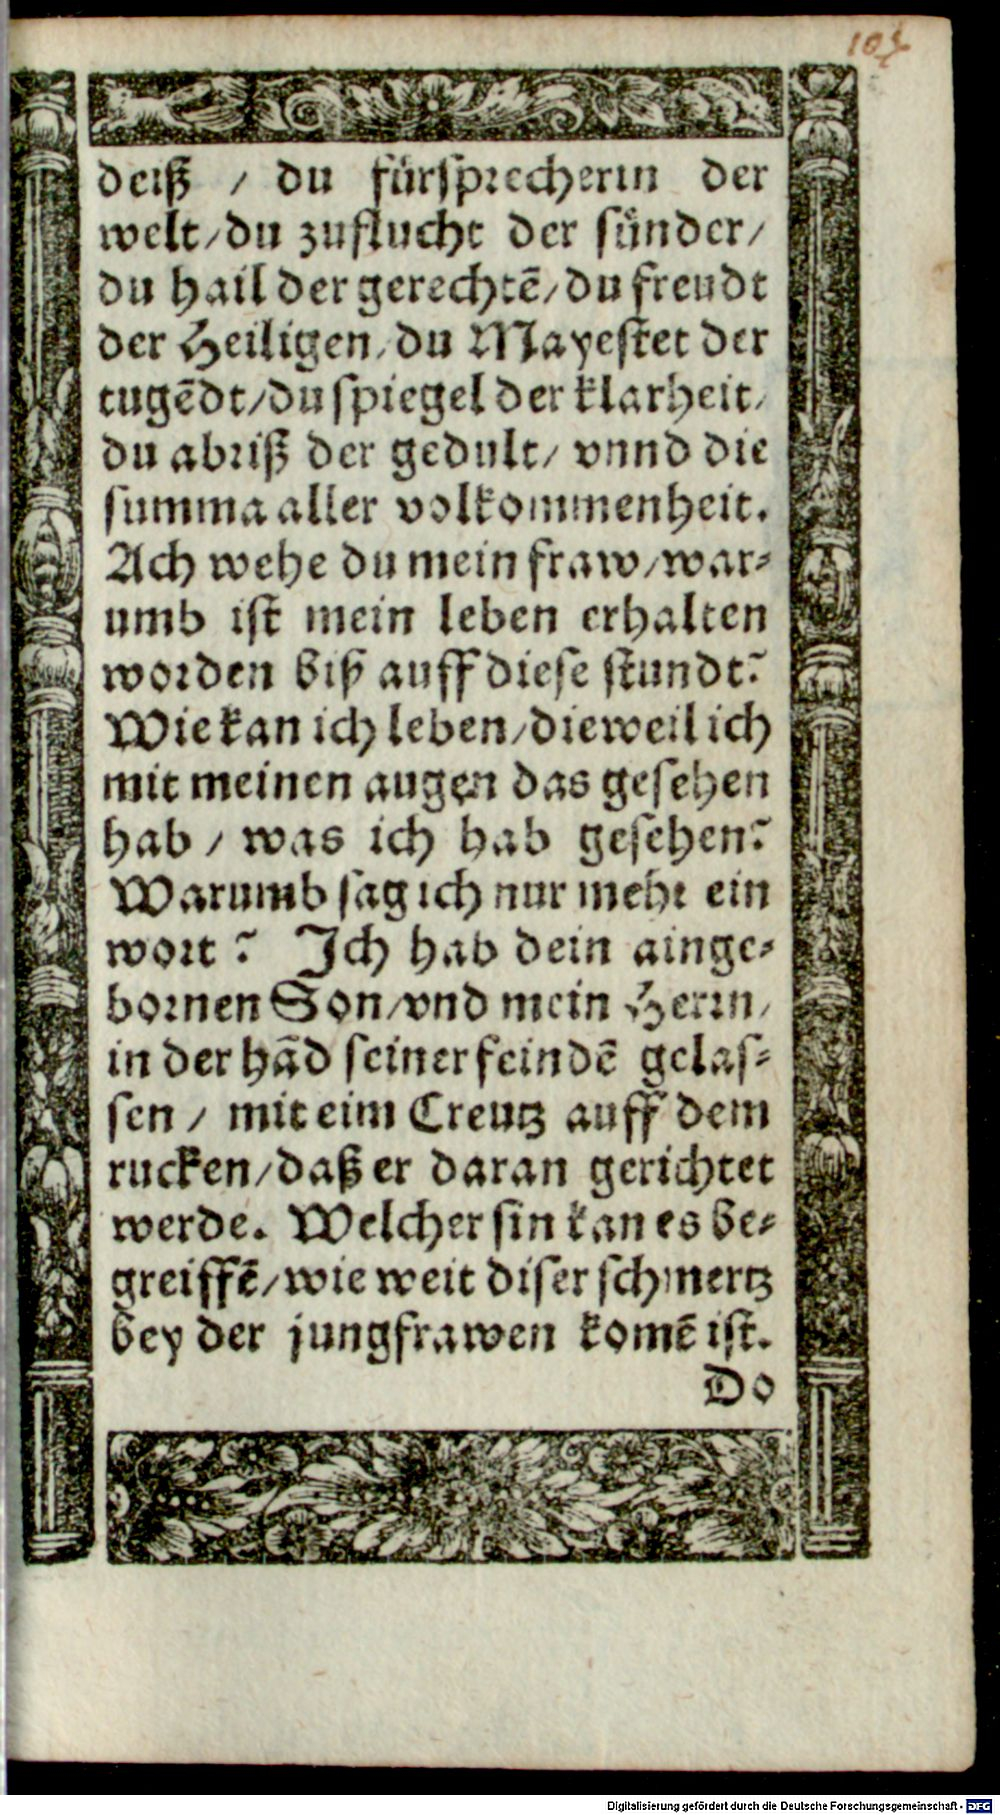 deiß / du fürsprecherin der
welt/du zuflucht der sünder/
du hail der gerechtē/du freudt
der Heiligen/du Mayestet der
tugēdt/du spiegel der klarheit/
du abriß der gedult/ vnnd die
summa aller volkommenheit.
Ach wehe du mein fraw/war-
umb ist mein leben erhalten
worden biß auff diese stundt?
Wie kan ich leben/dieweil ich
mit meinen augen das gesehen
hab / was ich hab gesehen?
Warumb sag ich nur mehr ein
wort ? Ich hab dein ainge-
bornen Son/vnd mein Herrn/
in der hād seiner feindē gelas-
sen / mit eim Creutz auff dem
rucken/daß er daran gerichtet
werde. Welcher sin kan es be-
greiffē/wie weit diser schmertz
bey der jungfrawen komē ist.
Do
Digitalisierung gefördert durch die Deutsche Forschungsgemeinschaft - DFG